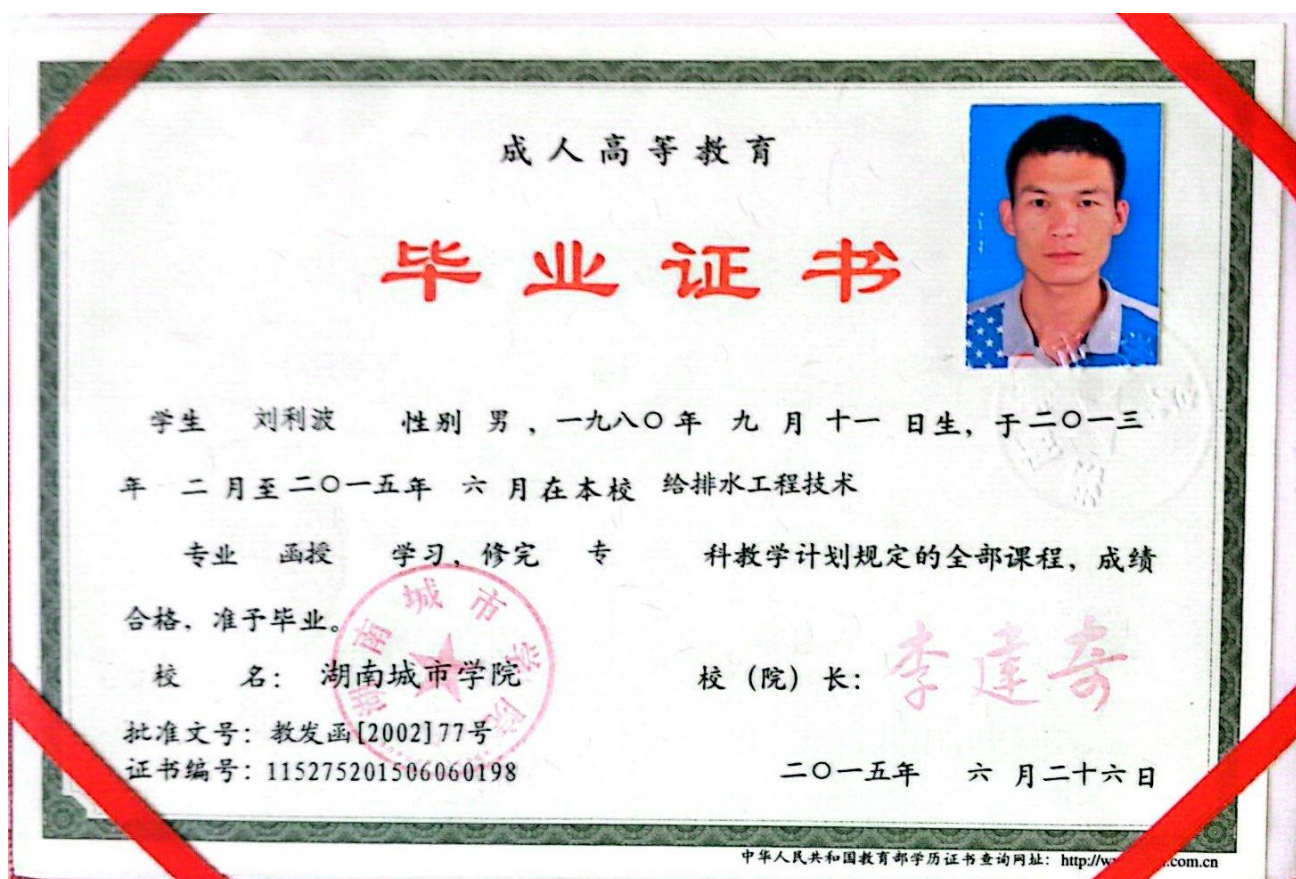 成人高等教育
毕业证书
学生 刘利波 性别 男，一九八〇年 九 月 十一 日生，于二〇一三
年 二 月至二〇一五年 六 月在本校 给排水工程技术
专业 函授 学习，修完 专 科教学计划规定的全部课程，成绩
合格，准予毕业。
湖南城市学院
校 名：湖南城市学院 校（院）长：李建奇
批准文号：教发函[2002]77号
证书编号：115275201506060198 二〇一五年 六 月二十六日
中华人民共和国教育部学历证书查询网址：http://w .com.cn